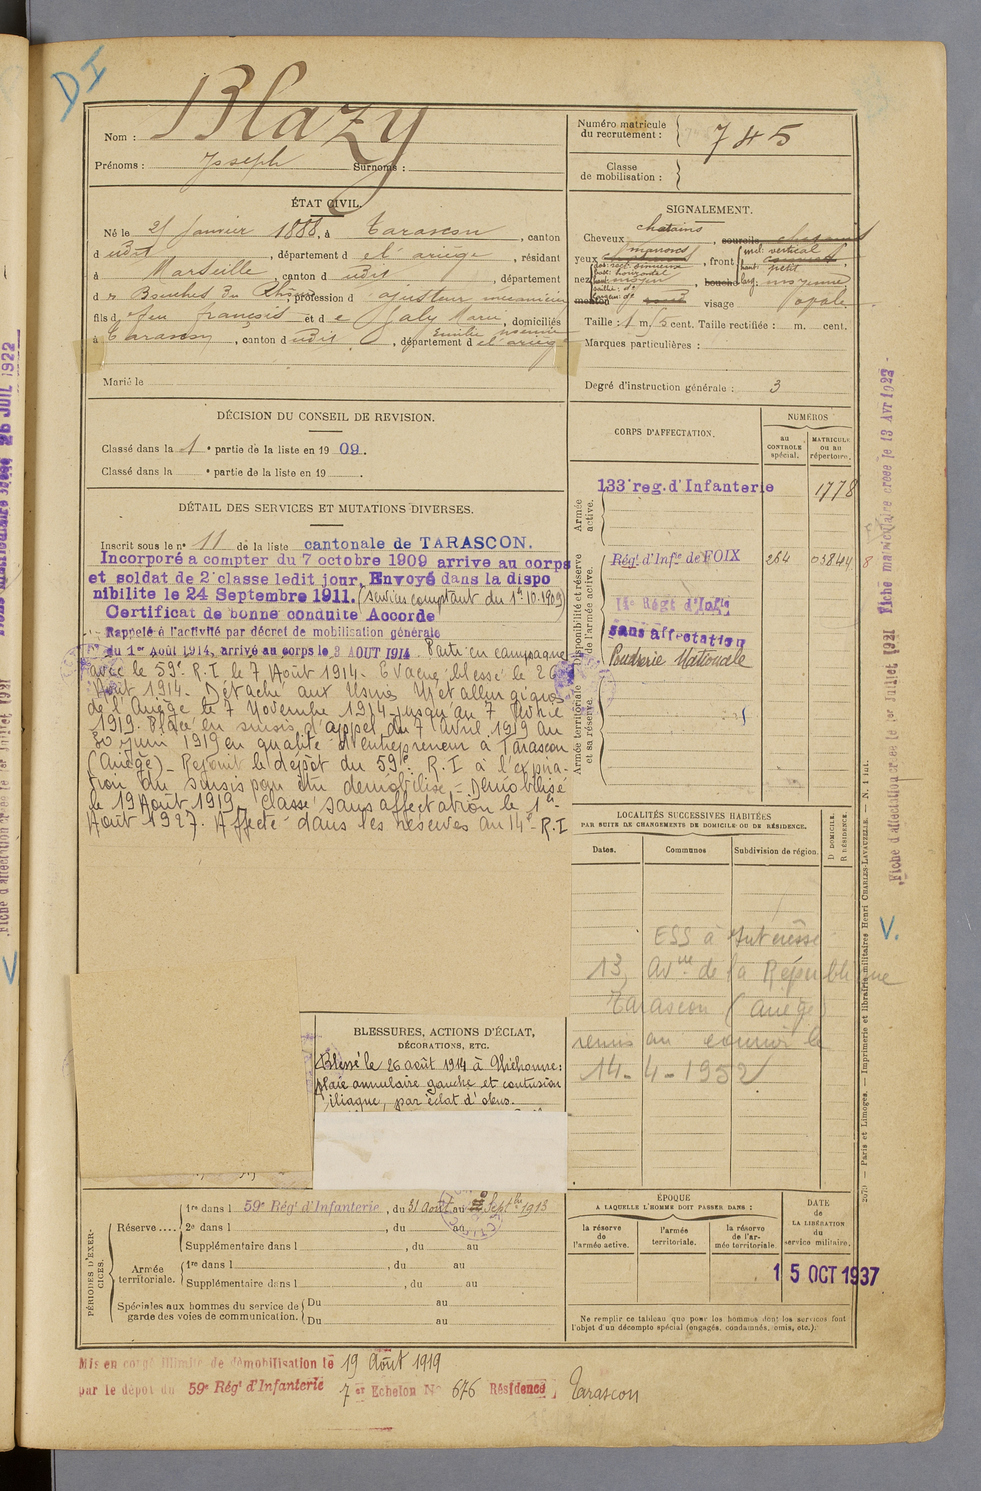 DI
Blazy
Nom :
Prénoms : Joseph Surnoms :
Numéro matricule du recrutement : 745
Classe de mobilisation :
ÉTAT CIVIL.
Né le 21 Janvier 1888, à Tarascon, canton
d udit, département d el ariège, résidant
à Marseille, canton d udit, département
d s Bouches du Rhône, profession d ajusteur mécanicien
fils d feu françois et d e Galy Marie Emilie Noémie, domiciliés
à Tarascon, canton d udit, département d e l'ariège
Marié le
SIGNALEMENT.
Cheveux chatains, sourcils chatains
yeux marrons, front incl. vertical haut. petit larg. moyenne
nez dos: rect. sinueux base: horizontal haut. moyen saillie: d° largeur: d°, bouche
menton visage ovale.
Taille : 1 m. cent. Taille rectifiée : m. cent.
Marques particulières :
Degré d'instruction générale : 3
DÉCISION DU CONSEIL DE REVISION.
Classé dans la 1e partie de la liste en 1909.
Classé dans la e partie de la liste en 19
DÉTAIL DES SERVICES ET MUTATIONS DIVERSES.
Inscrit sous le n° 11 de la liste cantonale de TARASCON.
Incorporé a compter du 7 octobre 1909 arrive au corps
et soldat de 2e classe ledit jour. Envoyé dans la dispo
nibilite le 24 Septembre 1911. (services comptant du 1er 10.1909)
Certificat de bonne conduite Accordé
Rappelé à l'activité par décret de mobilisation générale
du 1er Août 1914, arrivé au corps le 3 AOUT 1914. Parti en campagne
avec le 59e R.I. le 7 Août 1914. Evacué blessé le 26
Août 1914. Détaché aux Usines Métallurgiques
de l'Ariège le 7 Novembre 1914 jusqu'au 7 Avril
1919. Placé en sursis d'appel du 7 avril 1919 au
30 juin 1919 en qualité d'entrepreneur à Tarascon
(Ariège) - Rejoint le dépôt du 59e R.I à l'expira-
tion du sursis pour être démobilisé - Démobilisé
le 19 Août 1919 - Classé sans affectation le 1er
Août 1927. Affecté dans les réserves au 14e R.I
CORPS D'AFFECTATION.
NUMÉROS
au CONTROLE spécial.
MATRICULE ou au répertoire.
Armée active.
133e reg. d'Infanterie 1778
Disponibilité et réserve de l'armée active.
Régt d'Infie de FOIX 264 03844 8
14e Régt d'Infie
sans affectation
Poudrerie Nationale
Armée territoriale et sa réserve.
LOCALITÉS SUCCESSIVES HABITÉES
PAR SUITE DE CHANGEMENTS DE DOMICILE OU DE RÉSIDENCE.
Dates. Communes Subdivision de région. D DOMICILE. R RÉSIDENCE.
ESS à Intéressé
13, Avnue de la République
Tarascon (Ariège)
remis au courrier le
14-4-1952
BLESSURES, ACTIONS D'ÉCLAT,
DÉCORATIONS, ETC.
Blessé le 26 août 1914 à Thélonne:
plaie annulaire gauche et contusion
iliaque, par éclat d'obus.
PÉRIODES D'EXERCICES.
Réserve.... 1re dans l 59e Régt d'Infanterie, du 31 Août au Septbre 1913
2e dans l , du au
Supplémentaire dans l , du au
Armée territoriale. 1re dans l , du au
Supplémentaire dans l , du au
Spéciales aux hommes du service de garde des voies de communication. Du au
Du au
ÉPOQUE
A LAQUELLE L'HOMME DOIT PASSER DANS :
la réserve de l'armée active.
l'armée territoriale.
la réserve de l'armée territoriale.
DATE de LA LIBÉRATION du service militaire.
15 OCT 1937
Ne remplir ce tableau que pour les hommes dont les services font
l'objet d'un décompte spécial (engagés, condamnés, omis, etc.).
Mis en congé illimité de démobilisation le 19 Août 1919
par le dépôt du 59e Régt d'Infanterie 7e Echelon N° 676 Résidence Tarascon
Fiche matriculaire créée le 13 Avr 1923
Fiche d'affectation créée le 1er Juillet 1921
V.
Paris et Limoges. — Imprimerie et librairie militaires Henri CHARLES-LAVAUZELLE. — N. 1 int.
26 JUIL 1922
V